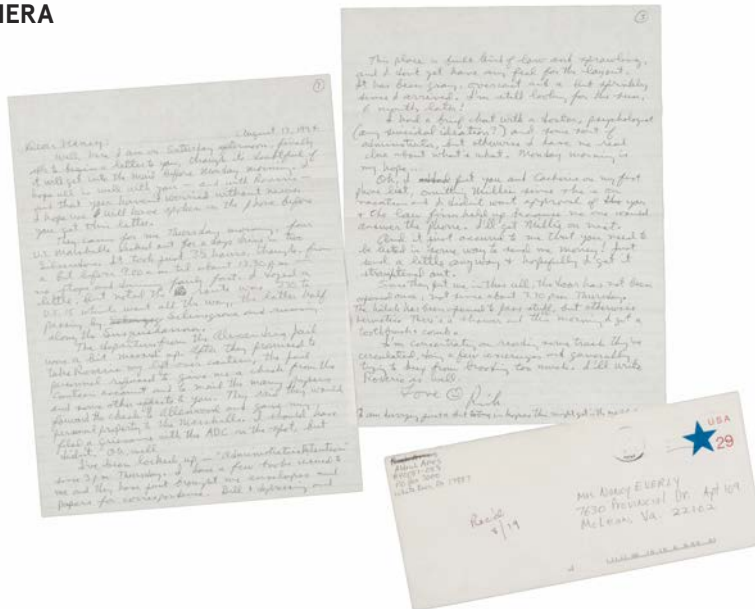 IERA
1
August 13, 1994
Dear Nancy:
Well, here I am on Saturday afternoon, finally
able to begin a letter to you, though its doubtful if
it will get into the mail before Monday morning. I
hope all is well with you — and with Rosario —
and that you haven't worried without news.
I hope we will have spoken on the phone before
you get this letter.
They came for me Thursday morning, four
U.S. Marshalls decked out for a days drive in two
Suburbans. It took just 3½ hours, though, from
a bit before 9:00 a.m. til about 12:30 p.m. —
no stops and driving fairly fast. I dozed a
little. But noted the route was 270 to
U.S. 15 which was all the way, the latter half
passing by Selinsgrove and running
along the Susquehanna.
The departure from the Alexandria jail
was a bit messed up. After they promised to
take Rosario my left over canteen, the jail
personnel refused to give me a check from the
canteen account and to mail the many papers
and some other objects to you. They said they would
forward the check to Allenwood and gave my
personal property to the Marshalls. I should have
filed a grievance with the ADC on the spot, but
didn't. Oh, well.
I've been locked up — "Administrative Detention"
since 2 p.m. Thursday. I have a few books issued to
me and they have just brought me envelopes and
papers for correspondence. Bill + depressing and
3
This place is built kind of low and sprawling,
and I don't yet have any feel for the layout.
It has been gray, overcast with a bit sprinkly
since I arrived. I'm still looking for the sun,
6 months later!
I had a brief chat with a doctor, psychologist
(any suicidal ideation?) and some sort of
administrator, but otherwise I have no read
else about what's what. Monday morning is
my hope...
Oh, I put you and Cacheris on my first
phone list, omitting Millie since she is on
vacation and I didn't want approval of you
+ the law firm held up because no one would
answer the phone. I'll get Millie on next.
And it just occurred to me that you need to
be listed in some way to send me money! Just
send a little anyway + hopefully I'd get it
straightened out.
Since they put me in this cell, the door has not been
opened once, not since about 2:30 p.m. Thursday.
The hatch has been opened to pass stuff, but otherwise
hermetic. There is a shower and this morning I got a
toothbrush + comb.
I'm concentrating on reading some trash they've
circulated, doing a few exercises and generally
trying to keep from brooding too much. I'll write
Rosario as well.
Love Rick
I am hurrying just a bit today in hopes this might get in the mail
Aldrich Ames
PO Box 3000
White Deer, PA 17887
Rec'd
8/19
USA
29
Ms Nancy EVERLY
7630 Provincial Dr. Apt 109
McLean, Va. 22102